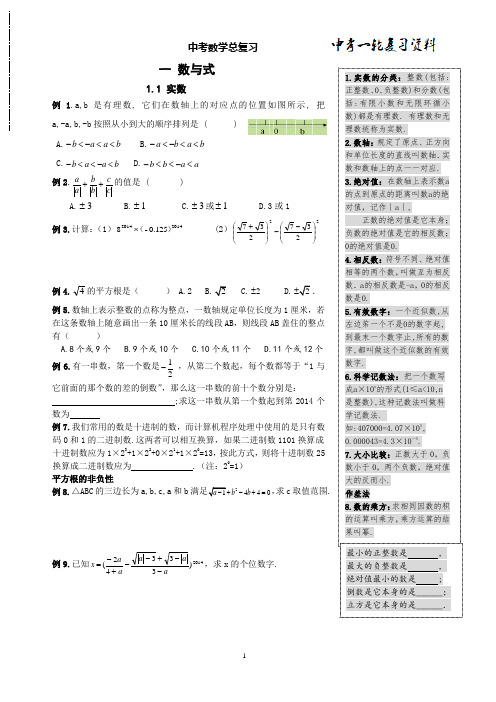 中考数学总复习
中考一轮复习资料
一 数与式
1.1 实数
例 1.a,b 是有理数, 它们在数轴上的对应点的位置如图所示, 把
a,-a,b,-b 按照从小到大的顺序排列是 ( )
a 0 b
A.-b<-a<a<b B.-a<-b<a<b
C.-b<a<-a<b D.-b<b<-a<a
例 2. a/|a| + b/|b| + c/|c| 的值是 ( )
A.±3 B.±1 C.±3或±1 D.3 或 1
例 3.计算:(1) 8^2014×(-0.125)^2014 (2) ((√7+√3)/2)^2-((√7-√3)/2)^2
例 4.√4 的平方根是( ) A.2 B.√2 C.±2 D.±√2.
例 5.数轴上表示整数的点称为整点,一数轴规定单位长度为 1 厘米,若
在这条数轴上随意画出一条 10 厘米长的线段 AB,则线段 AB 盖住的整点
有( )
A.8 个或 9 个 B.9 个或 10 个 C.10 个或 11 个 D.11 个或 12 个
例 6.有一串数,第一个数是 -1/2 ,从第二个数起,每个数都等于“1 与
它前面的那个数的差的倒数”,那么这一串数的前十个数分别是:
;求这一串数从第一个数起到第 2014 个
数为
例 7.我们常用的数是十进制的数,而计算机程序处理中使用的是只有数
码 0 和 1 的二进制数.这两者可以相互换算,如果二进制数 1101 换算成
十进制数应为 1×2³+1×2²+0×2¹+1×2⁰=13,按此方式,则将十进制数 25
换算成二进制数应为 .(注:2⁰=1)
平方根的非负性
例 8.△ABC 的三边长为 a,b,c,a 和 b 满足√(a-1)+b²-4b+4=0,求 c 取值范围.
例 9.已知 x=((-2a)/(4+a)-(√(|a|-3)+√(3-|a|))/(3-a))^2014,求 x 的个位数字.
1.实数的分类:整数(包括:
正整数、0、负整数)和分数(包
括:有限小数和无限环循小
数)都是有理数. 有理数和无
理数统称为实数.
2.数轴:规定了原点、正方向
和单位长度的直线叫数轴.实
数和数轴上的点一一对应.
3.绝对值:在数轴上表示数a
的点到原点的距离叫数a的绝
对值,记作∣a∣.
正数的绝对值是它本身;
负数的绝对值是它的相反数;
0的绝对值是0.
4.相反数:符号不同、绝对值
相等的两个数,叫做互为相反
数.a的相反数是-a,0的相反
数是0.
5.有效数字:一个近似数,从
左边笫一个不是0的数字起,
到最末一个数字止,所有的数
字,都叫做这个近似数的有效
数字.
6.科学记数法:把一个数写
成a×10ⁿ的形式(1≤a<10,n
是整数),这种记数法叫做科
学记数法.
如:407000=4.07×10⁵,
0.000043=4.3×10⁻⁵.
7.大小比较:正数大于0,负
数小于0,两个负数,绝对值
大的反而小.
作差法
8.数的乘方:求相同因数的积
的运算叫乘方,乘方运算的结
果叫幂.
最小的正整数是 ,
最大的负整数是 ,
绝对值最小的数是 ;
倒数是它本身的是 ;
立方是它本身的是 .
1